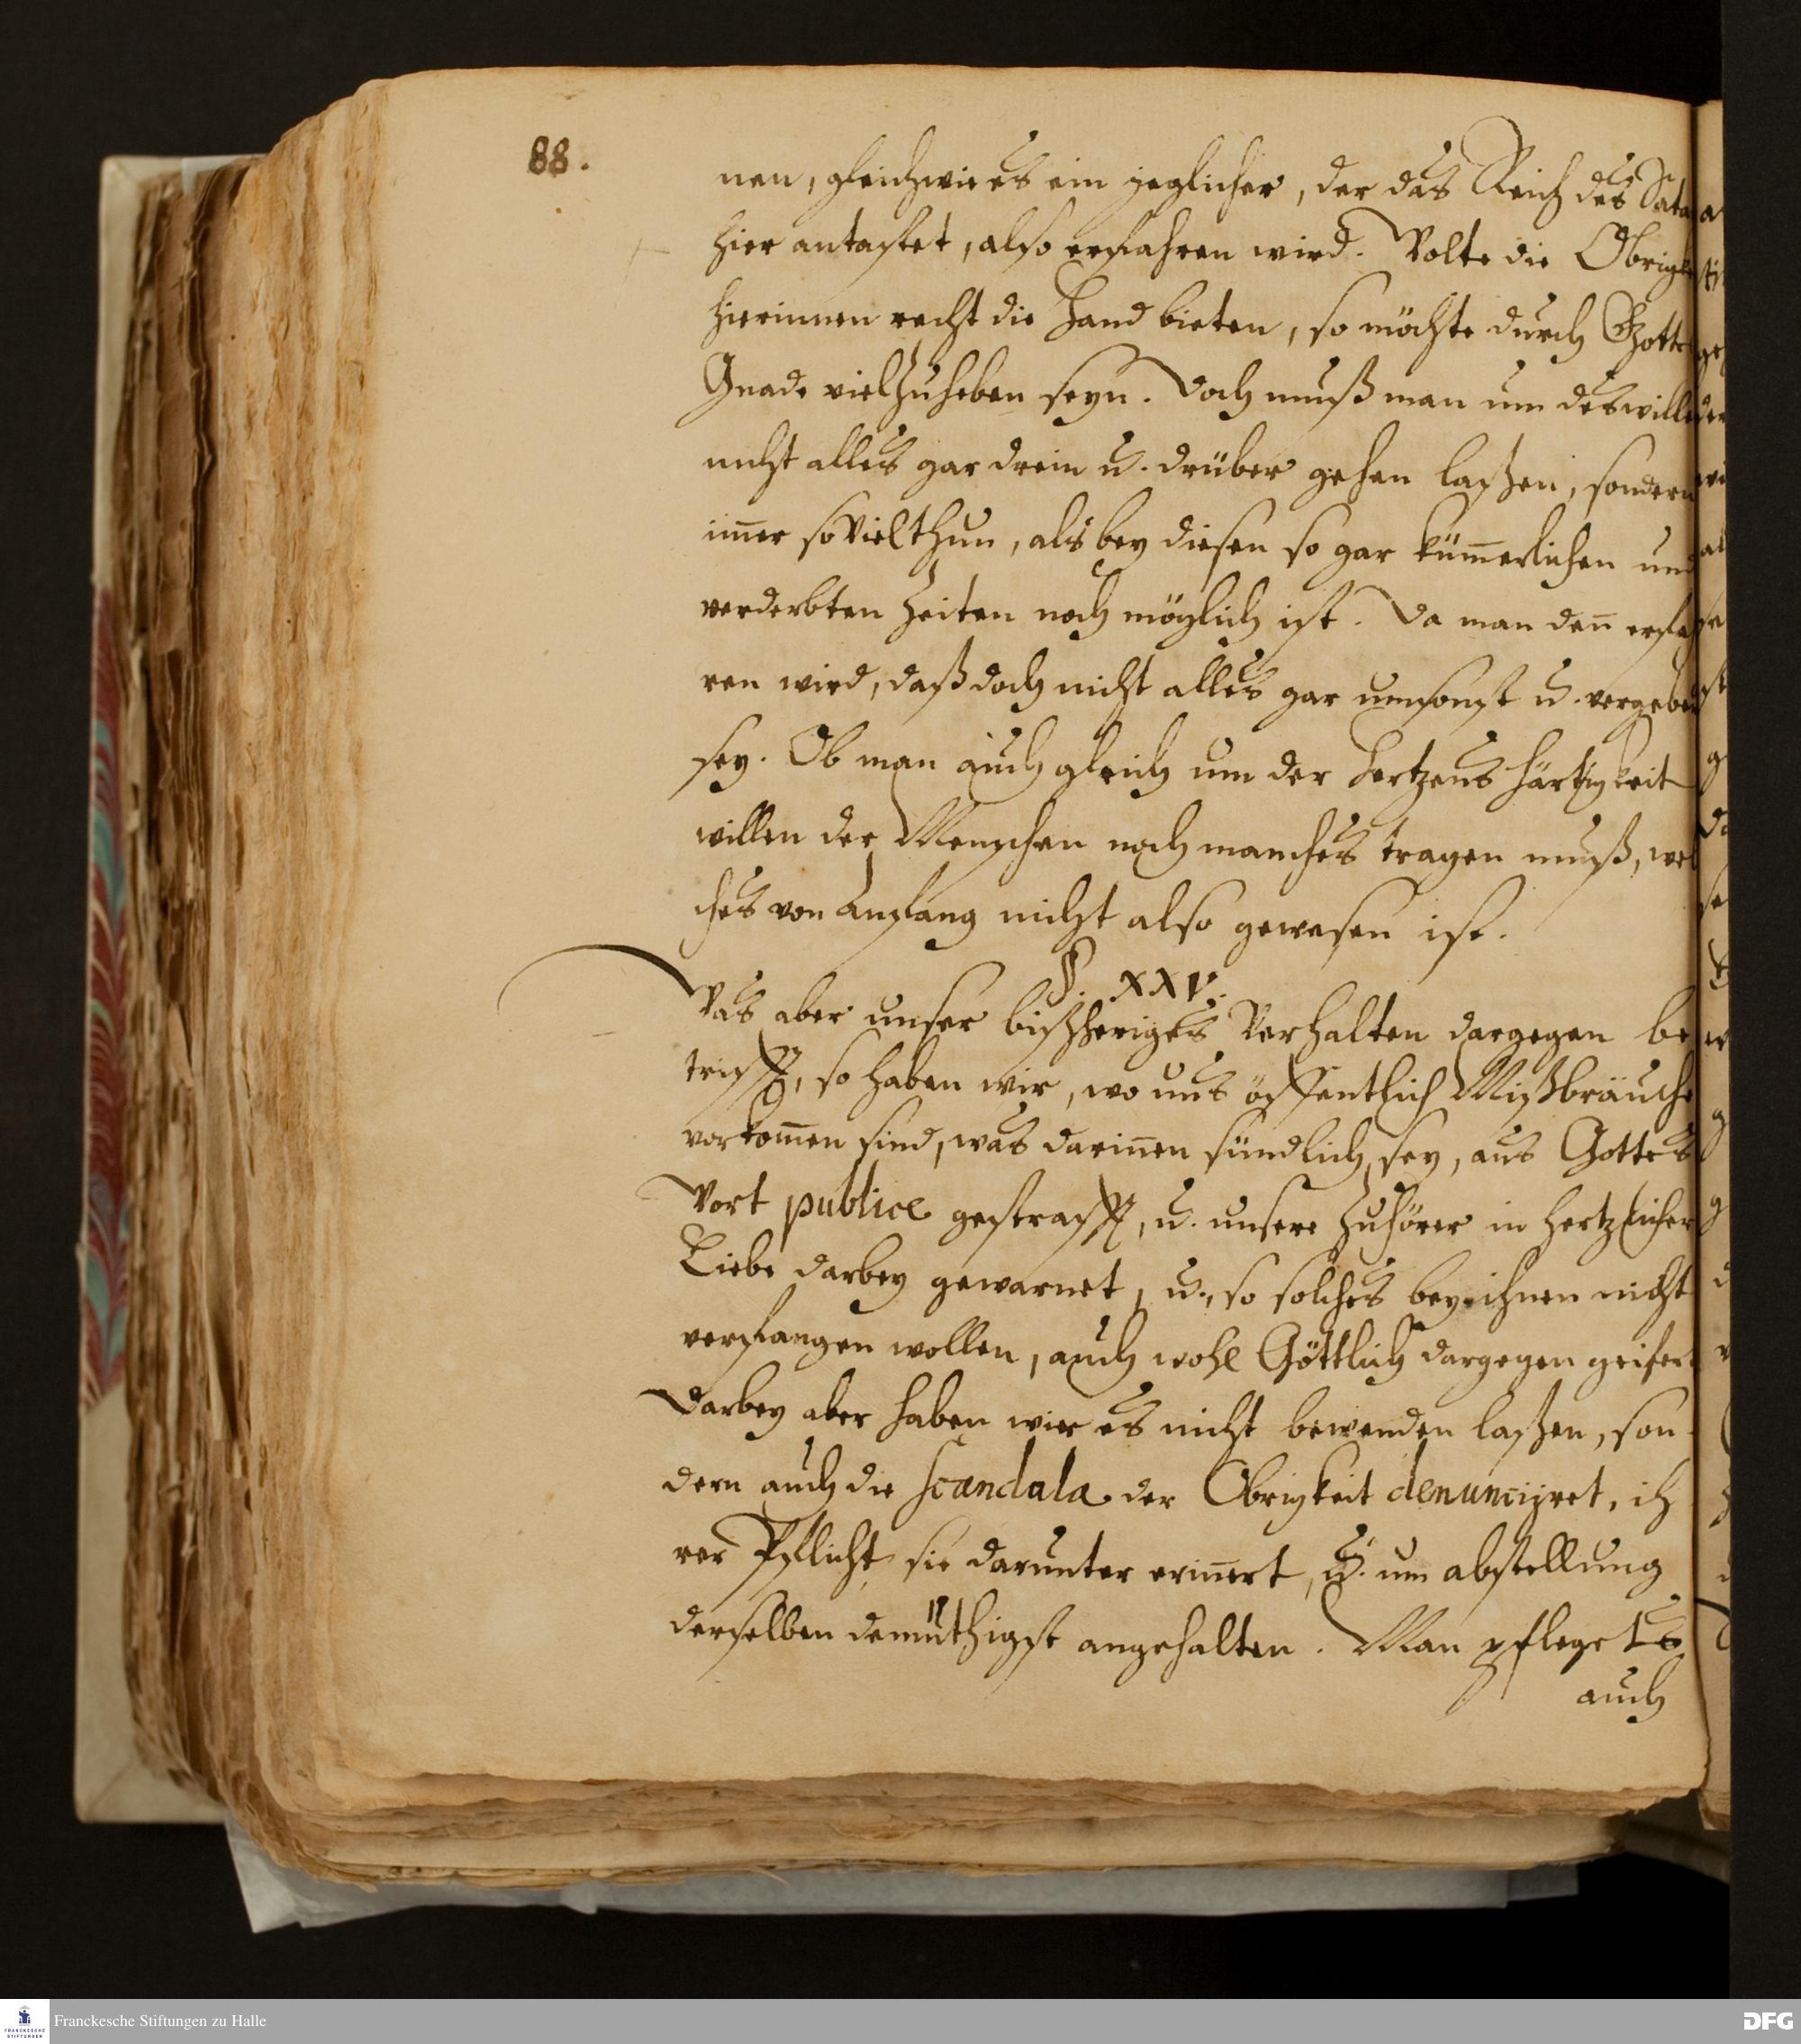 88.
nen, gleichwie es ein jeglicher, der das Reich des Sata
hier antastet, also erfahren wird. Wolte die Obrigk
hierinnen recht die Hand bieten, so möchte durch Gottes
Gnade viel zu heben seyn. Doch muß man um deswille
nicht alles gar drein u. drüber gehen laßen, sondern
im̄er so viel thun, als bey diesen so gar küm̄erlichen und
verderbten Zeiten noch möglich ist. Da man den̄ erfah
ren wird, daß doch nicht alles gar umsonst u. vergebens
sey. Ob man auch gleich um der Hertzens härtigkeit
willen der Menschen noch manches tragen muß, wel
ches von Anfang nicht also gewesen ist.
§. XXV.
Was aber unser bißheriges Verhalten dargegen be
trifft, so haben wir, wo uns öffentlich Mißbräuche
vorkom̄en sind, was darin̄en sündlich sey, aus Gottes
Wort publice gestrafft, u. unsere Zuhörer in hertzlicher
Liebe darbey gewarnet, u., so solches bey ihnen nicht
verfangen wollen, auch wohl Göttlich dargegen geifert
Darbey aber haben wir es nicht bewenden laßen, son
dern auch die scandala der Obrigkeit denunciret, ih
rer Pflicht sie darunter erin̄ert, u. um abstellung
derselben demüthigst angehalten. Man pfleget es
auch
Franckesche Stiftungen zu Halle
FRANCKESCHE
STIFTUNGEN
DFG